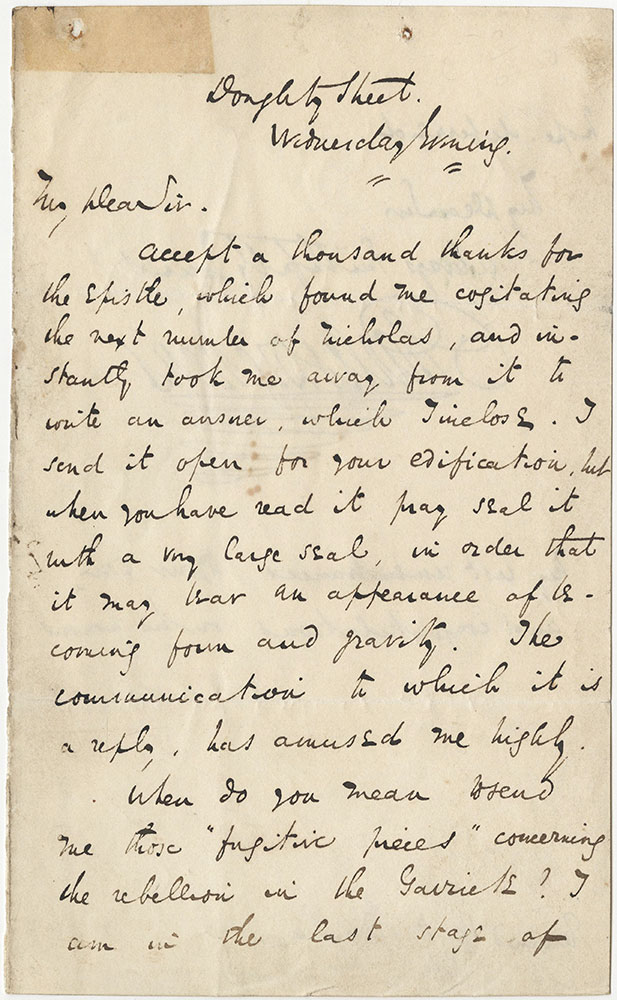 Doughty Street.
Wednesday Evening.
My Dear Sir.
Accept a thousand thanks for
the Epistle, which found me cogitating
the next number of Nicholas, and in-
stantly took me away from it to
write an answer, which I inclose. I
send it open for your edification, but
when you have read it pray seal it
with a very large seal, in order that
it may bear an appearance of be-
coming form and gravity. The
communication to which it is
a reply, has amused me highly.
When do you mean to send
me those "fugitive pieces" concerning
the rebellion in the Garrick? I
am in the last stage of